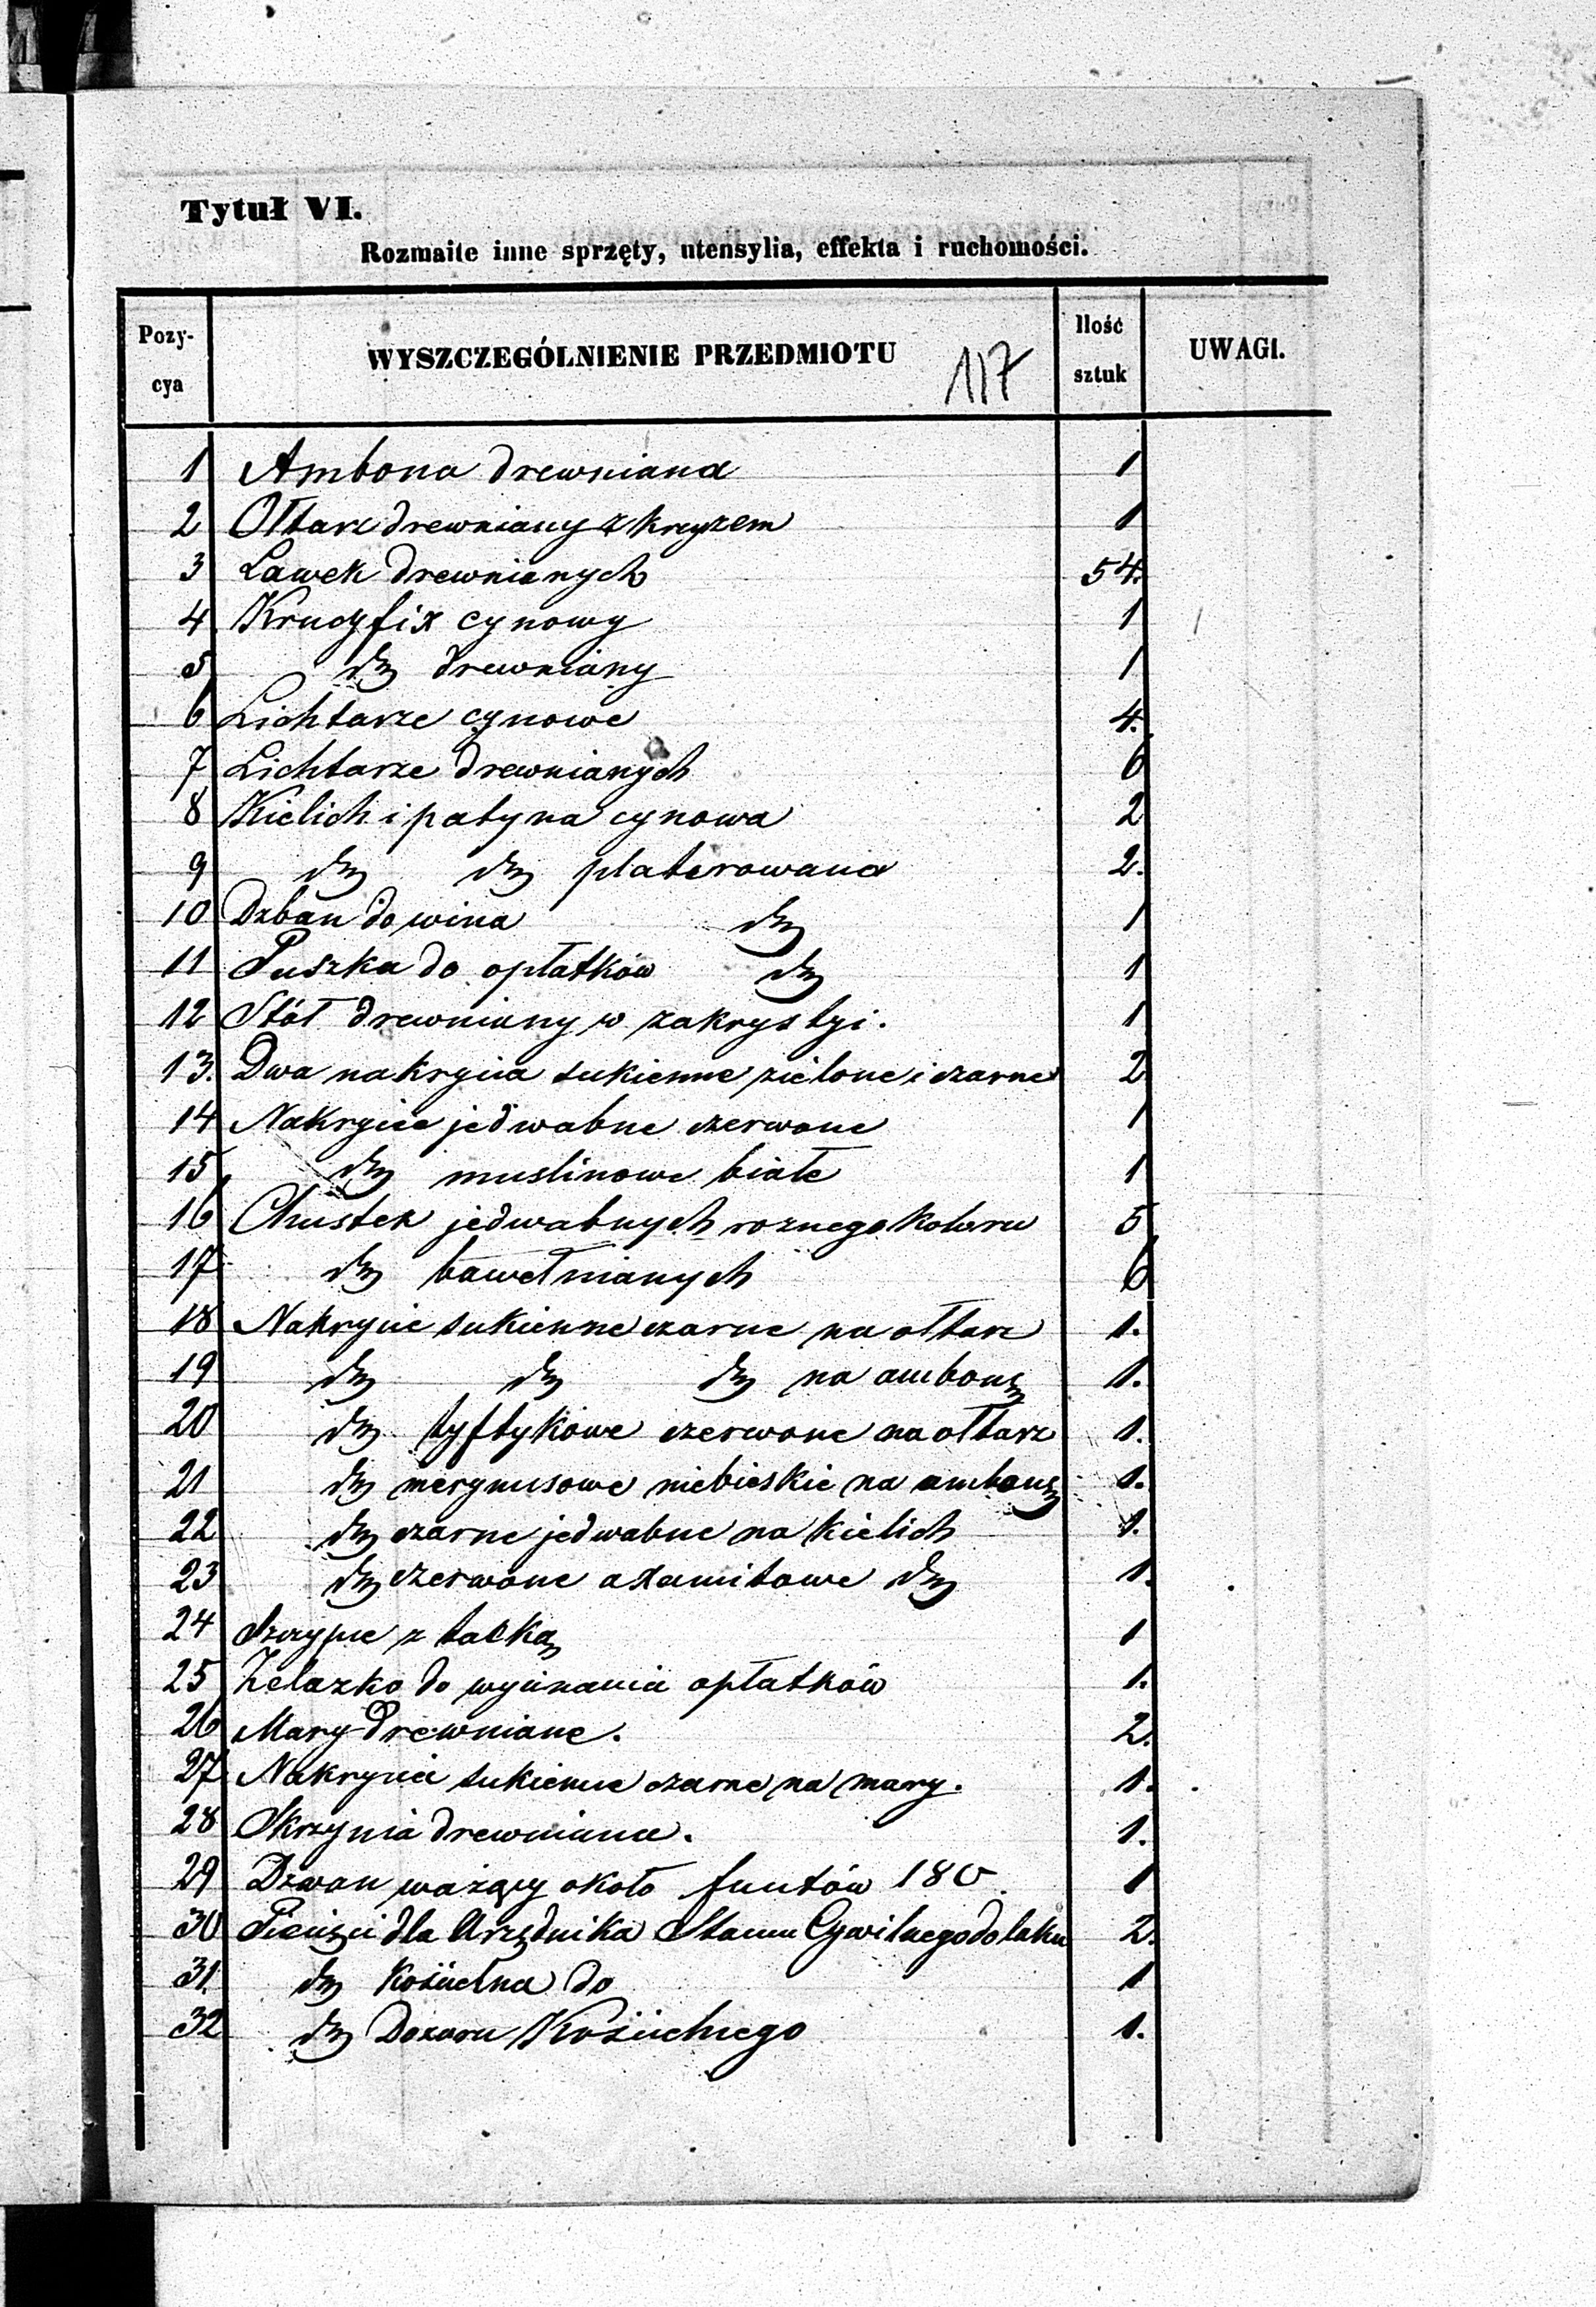 Tytuł VI.
Rozmaite inne sprzęty, utensylia, effekta i ruchomości.
Pozy-cya WYSZCZEGÓLNIENIE PRZEDMIOTU 117 Ilość sztuk UWAGI.
1 Ambona drewniana 1
2 Ołtarz drewniany z krzyzem 1
3 Ławek drewnianych 54.
4 Krucyfix cynowy 1
5 dto drewniany 1
6 Lichtarze cynowe 4.
7 Lichtarze drewnianych 6
8 Kielich i patyna cynowa 2
9 dto dto platerowana 2.
10 Dzban do wina dto 1
11 Puszka do opłatków dto 1
12 Stół drewniany w zakrystyi. 1
13. Dwa nakrycia sukienne zielone i czarne 2
14 Nakrycie jedwabne czerwone 1
15 dto muslinowe białe 1
16 Chustek jedwabnych roznego koloru 5
17 dto bawełnianych 6
18 Nakrycie sukienne czarne na ołtarz 1.
19 dto dto dto na ambonę 1.
20 dto tyftykowe czerwone na ołtarz 1.
21 dto merynusowe niebieskie na ambonę 1.
22 dto czarne jedwabne na kielich 1.
23 dto czerwone axamitowe dto 1.
24 Szczypce z tacką 1
25 Zelazko do wycinania opłatków 1.
26 Mary drewniane. 2.
27 Nakrycie sukienne czarne na mary. 1.
28 Skrzynia drewniana. 1.
29 Dzwon ważący około funtów 180. 1
30 Pieczęci dla Urzędnika Stanu Cywilnego do laku 2.
31. dto Kościelna do 1
32 dto Dozoru Kościelnego 1.